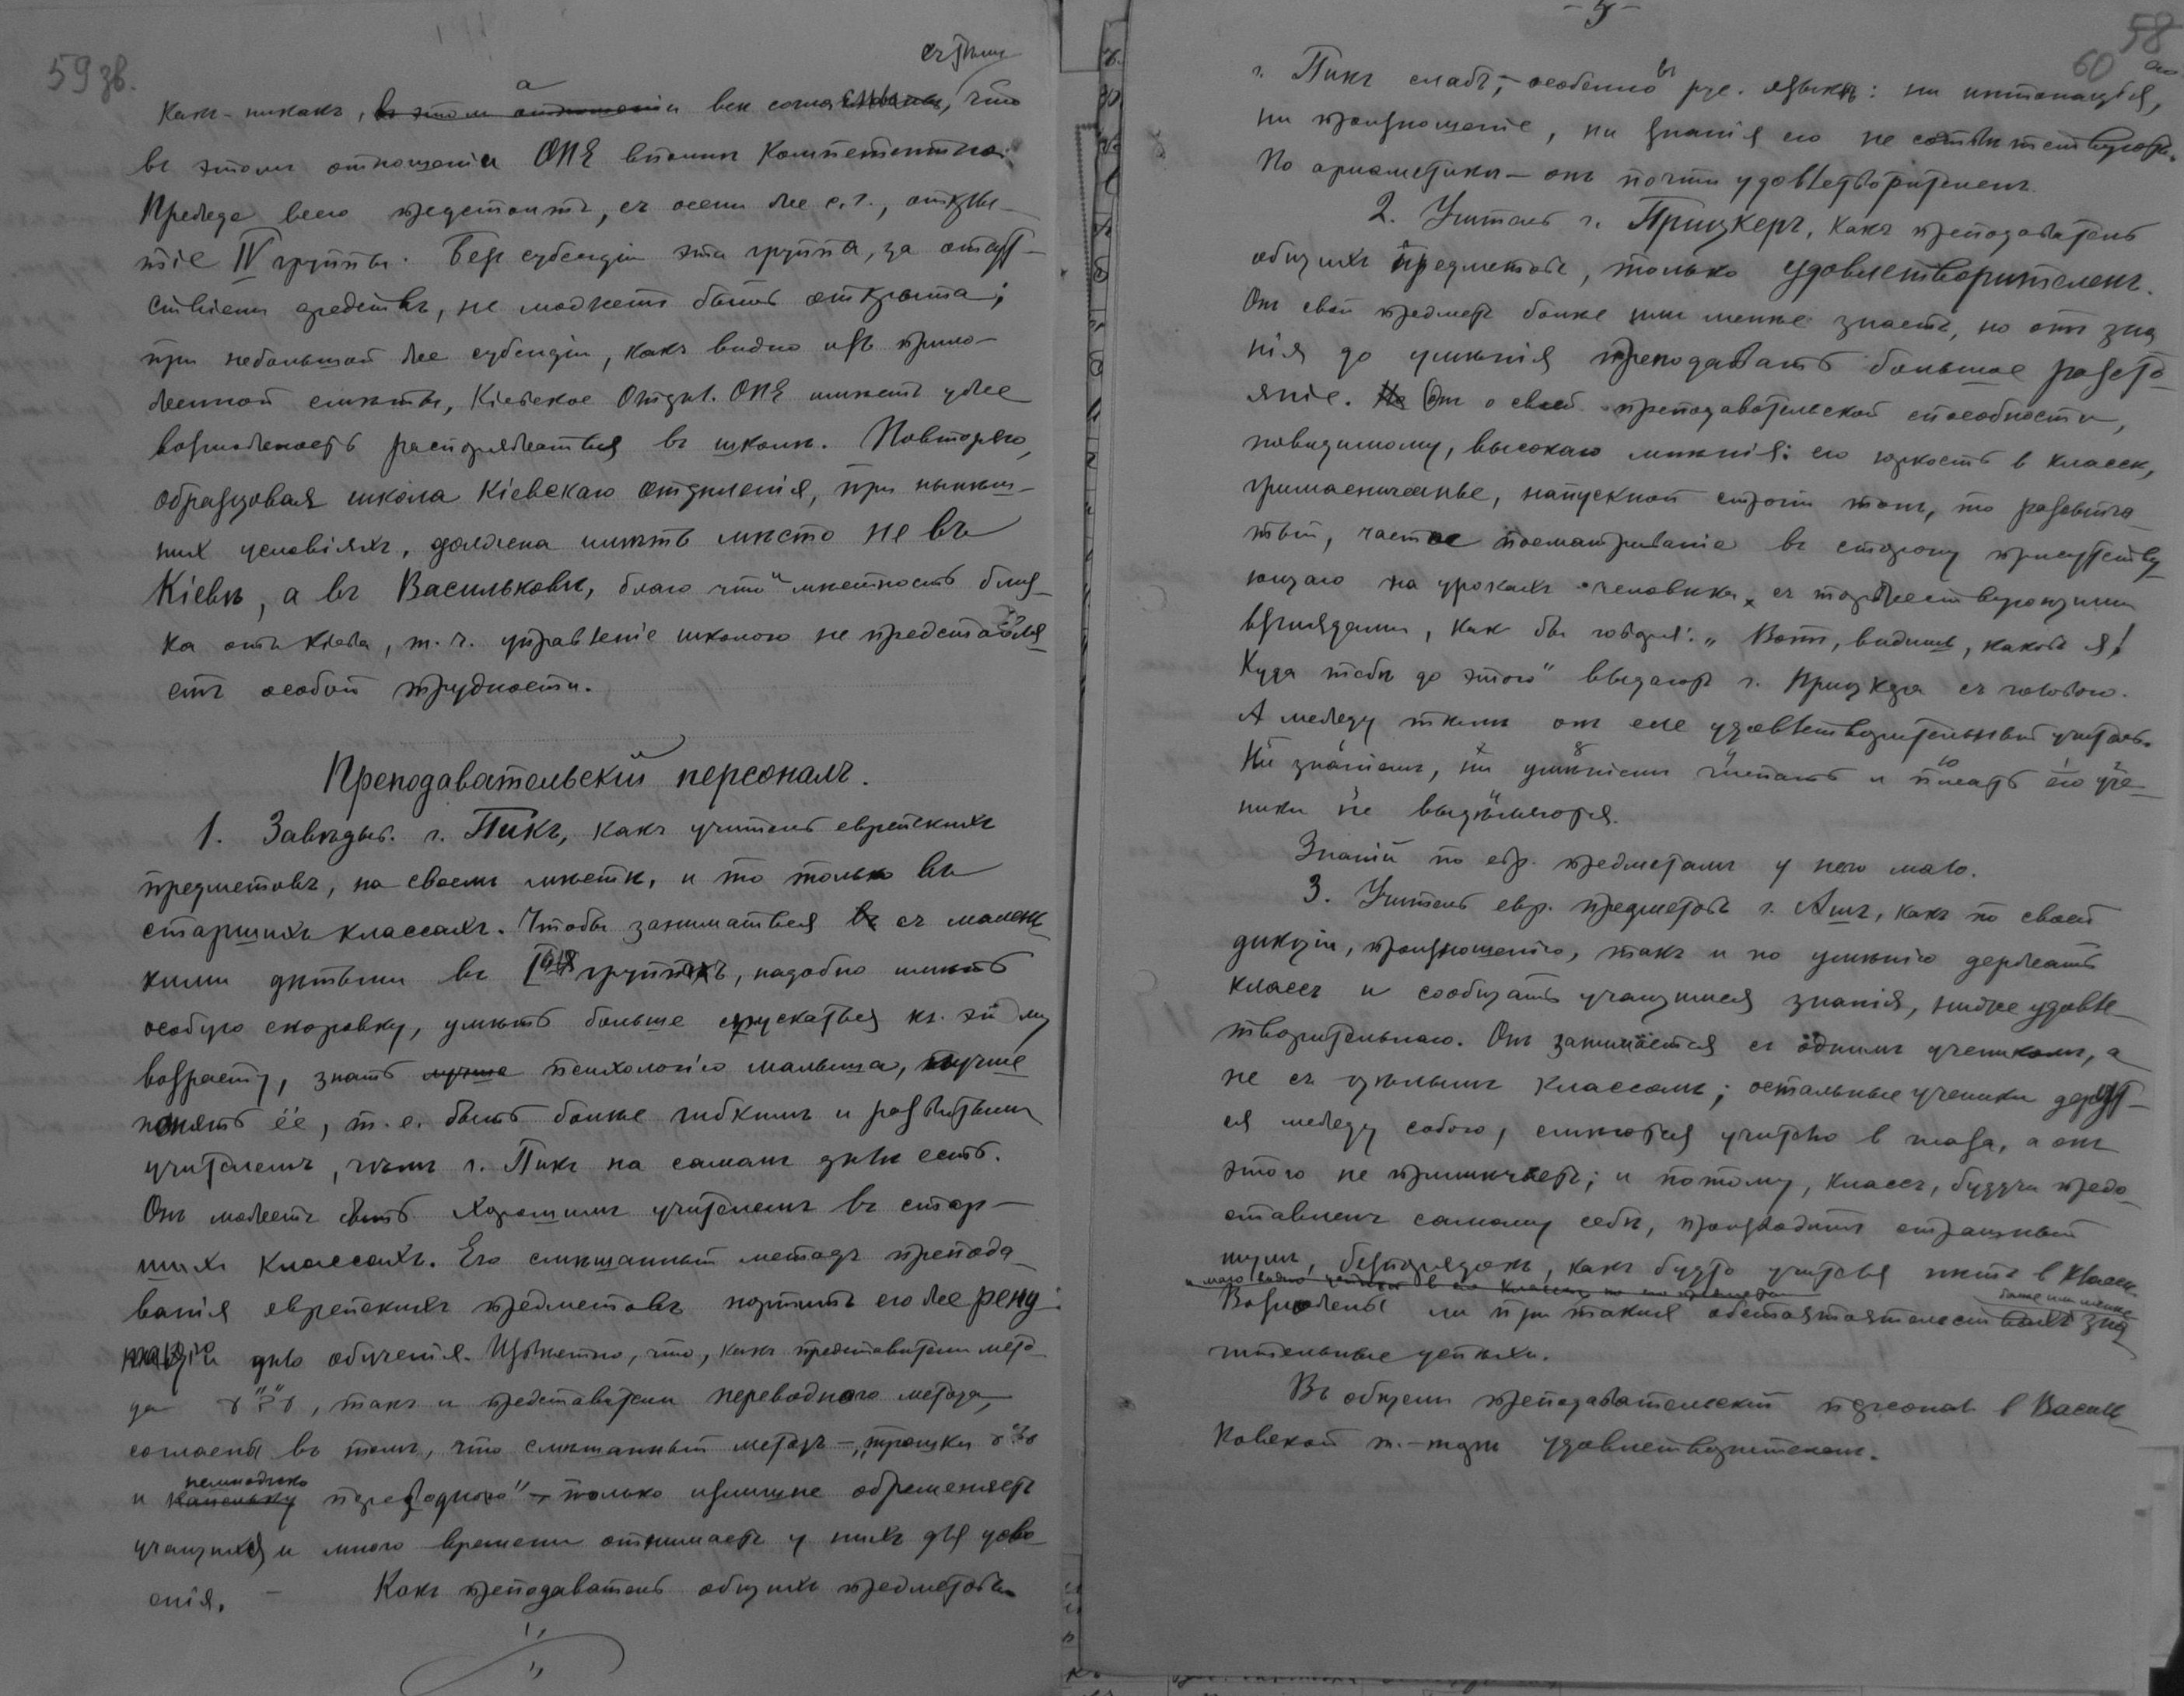 59 зв.
съ тѣмъ
Какъ-никакъ, а всѣ согласны, что
въ этомъ отношеніи ОПЕ вполнѣ компетентно.
Прежде всего предстоитъ, съ осени же с.г., откры-
тіе IV группы. Безъ субсидіи эта группа, за отсут-
ствіемъ средствъ, не можетъ быть открыта;
при небольшой же субсидіи, какъ видно изъ прило-
женной смѣты, Кіевское Отдѣл. ОПЕ имѣетъ уже
возможность распоряжаться въ школѣ. Повторяю,
образцовая школа Кіевскаго отдѣленія, при нынѣш-
нихъ условіяхъ, должна имѣть мѣсто не въ
Кіевѣ, а въ Васильковѣ, благо что и мѣстность близ-
ка отъ Кіева, т. ч. управленіе школою не представля-
етъ особой трудности.
Преподавательскій персоналъ.
1. Завѣдыв. г. Пикъ, какъ учитель еврейскихъ
предметовъ, на своемъ мѣстѣ, и то только въ
старшихъ классахъ. Чтобы заниматься съ малень-
кими дѣтьми въ I группахъ, надобно имѣть
особую сноровку, умѣть больше спускаться къ этому
возрасту, знать психологію малыша, лучше
понять её, т. е. быть болѣе гибкимъ и развитымъ
учителемъ, чѣмъ г. Пикъ на самомъ дѣлѣ есть.
Онъ можетъ быть хорошимъ учителемъ въ стар-
шихъ классахъ. Его смѣшанный методъ препода-
ванія еврейскихъ предметовъ портитъ ему же репу-
тацію дѣло обученія. Извѣстно, что, какъ представители мето-
да עב"ע, такъ и представители переводнаго метода,
согласны въ томъ, что смѣшанный методъ — „трошки עב"ע
немножко
и капельку переводного" — только излишне обременяетъ
учащихся и много времени отнимаетъ у нихъ для усво-
енія. — Какъ преподаватель общихъ предметовъ
- 5 -
58
60
г. Пикъ слабъ, — особенно въ рус. языкѣ: ни интонація,
ни произношеніе, ни знанія его не соотвѣтствуютъ.
По ариѳметикѣ — онъ почти удовлетворителенъ.
2. Учитель г. Прицкеръ, какъ преподаватель
общихъ предметовъ, только удовлетворителенъ.
Онъ свой предметъ болѣе или менѣе знаетъ, но отъ зна-
нія до умѣнія преподавать большое разсто-
яніе. Но Онъ о своей преподавательской способности,
повидимому, высокаго мнѣнія: его юркость в классѣ,
гримасничанье, напускной строгій тонъ,
частое посматриваніе въ сторону присутству-
ющаго на урокахъ человѣка, съ торжествующими
взглядами, какъ бы говоря: „Вотъ, видишь, каковъ я!
Куда тебѣ до этого" выдаютъ г. Прицкера съ головою.
А между тѣмъ онъ еле удовлетворительный учитель.
Ни знаніемъ, ни умѣніемъ читать и писать его уче-
ники не выдѣляются.
Знаній по евр. предметамъ у него мало.
3. Учитель евр. предметовъ г. Ашъ, какъ по своей
дикціи, произношенію, такъ и по умѣнію держать
классъ и сообщать учащимся знанія, ниже удовле-
творительнаго. Онъ занимается съ однимъ ученикомъ, а
не съ цѣлымъ классомъ; остальные ученики дерут-
ся между собою, смѣются учителю в глаза, а онъ
этого не примѣчаетъ; и потому, классъ, будучи предо-
ставленъ самому себѣ, производитъ страшный
шумъ, безпорядокъ, какъ будто учителя нѣтъ в классѣ.
болѣе или менѣе
Возможны ли при такихъ обстоятельствахъ зна-
чительные успѣхи.
Въ общемъ преподавательскій персоналъ в Василь-
ковской т.-торѣ удовлетворителенъ.